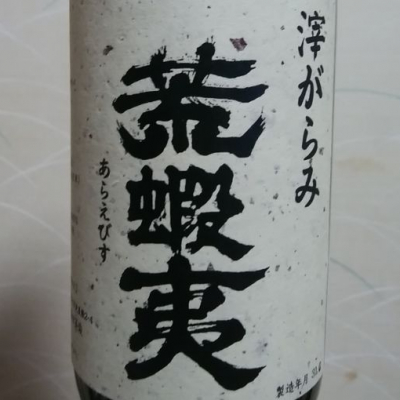 滓がらみ
荒蝦夷
あらえびす
製造年月